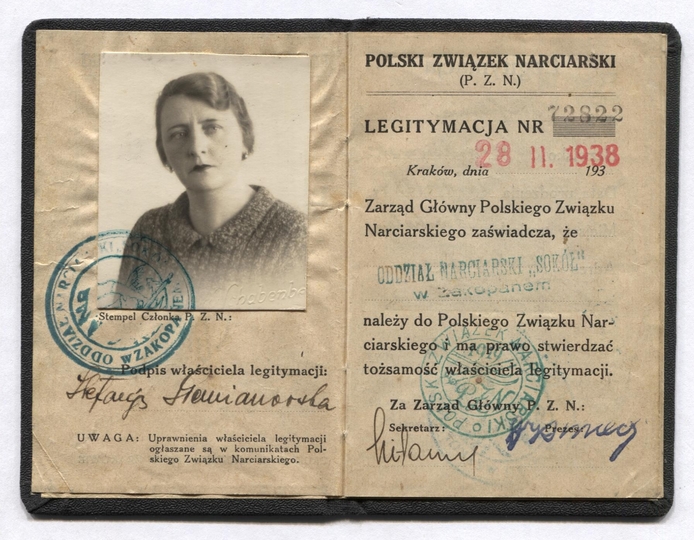 Stempel Członka P. Z. N.:
ODDZIAŁ NARCIARSKI „SOKÓŁ” W ZAKOPANEM
Podpis właściciela legitymacji:
UWAGA: Uprawnienia właściciela legitymacji
ogłaszane są w komunikatach Pol-
skiego Związku Narciarskiego.
POLSKI ZWIĄZEK NARCIARSKI
(P. Z. N.)
LEGITYMACJA NR 72822
28 II. 1938
Kraków, dnia 193
Zarząd Główny Polskiego Związku
Narciarskiego zaświadcza, że
ODDZIAŁ NARCIARSKI „SOKÓŁ”
w Zakopanem
należy do Polskiego Związku Nar-
ciarskiego i ma prawo stwierdzać
tożsamość właściciela legitymacji.
POLSKI ZWIĄZEK NARCIARSKI
Za Zarząd Główny P. Z. N.:
Sekretarz: Prezes: